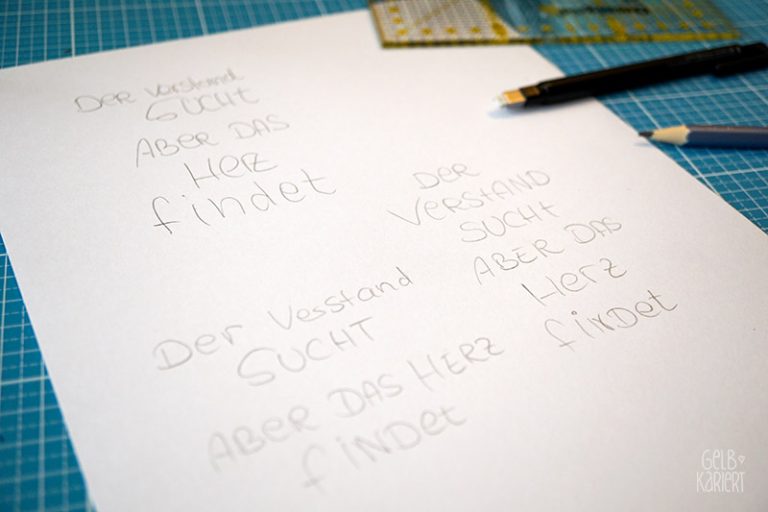 Der Verstand
SUCHT
ABER DAS
Herz
findet
DER
VERSTAND
SUCHT
ABER DAS
Herz
finDet
Der Verstand
SUCHT
ABER DAS HERZ
fiNDet
GELB
KARIERT